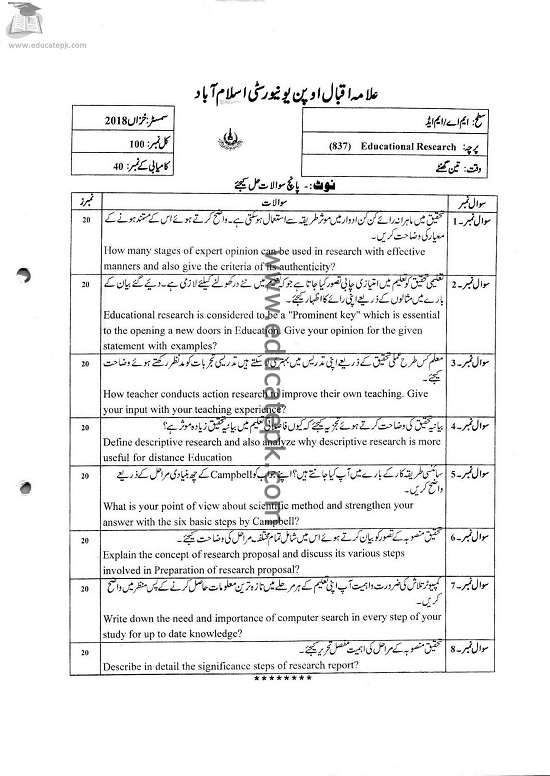 www.educatepk.com
علامہ اقبال اوپن یونیورسٹی اسلام آباد
سطح: ایم اے/ایم ایڈ
سمسٹر: خزاں 2018
پرچہ: Educational Research (837)
کل نمبر: 100
وقت: تین گھنٹے
کامیابی کے نمبر: 40
نوٹ:- پانچ سوالات حل کیجئے
سوال نمبر سوالات نمبرز
سوال نمبر-1 تحقیق میں ماہرانہ رائے کن کن ادوار میں موثر طریقہ سے استعمال ہو سکتی ہے۔ واضح کرتے ہوئے اس کے مستند ہونے کے 20
معیار کی وضاحت کریں۔
How many stages of expert opinion can be used in research with effective
manners and also give the criteria of its authenticity?
سوال نمبر-2 تعلیمی تحقیق کو تعلیم میں امتیازی چابی تصور کیا جاتا ہے جو کہ تعلیم میں نئے در کھولنے کیلئے لازمی ہے۔ دیئے گئے بیان کے 20
بارے میں مثالوں کے ذریعے اپنی رائے کا اظہار کیجئے۔
Educational research is considered to be a "Prominent key" which is essential
to the opening a new doors in Education. Give your opinion for the given
statement with examples?
سوال نمبر-3 معلم کس طرح عملی تحقیق کے ذریعے اپنی تدریس میں بہتری لا سکتے ہیں تدریسی تجربات کو مدنظر رکھتے ہوئے وضاحت 20
کیجئے۔
How teacher conducts action research to improve their own teaching. Give
your input with your teaching experience?
سوال نمبر-4 بیانیہ تحقیق کی وضاحت کرتے ہوئے تجزیہ کیجئے کہ کیوں فاصلاتی تعلیم میں بیانیہ تحقیق زیادہ موثر ہے؟ 20
Define descriptive research and also analyze why descriptive research is more
useful for distance Education
سوال نمبر-5 سائنسی طریقہ کار کے بارے میں آپ کیا جانتے ہیں؟ اپنے جواب کو Campbell کے چھ بنیادی مراحل کے ذریعے 20
واضح کریں۔
What is your point of view about scientific method and strengthen your
answer with the six basic steps by Campbell?
سوال نمبر-6 تحقیق منصوبہ کے تصور کو بیان کرتے ہوئے اس میں شامل تمام مختلف مراحل کی وضاحت کیجئے۔ 20
Explain the concept of research proposal and discuss its various steps
involved in Preparation of research proposal?
سوال نمبر-7 کمپیوٹر تلاش کی ضرورت و اہمیت آپ اپنی تعلیم کے ہر مرحلے میں تازہ ترین معلومات حاصل کرنے کے پس منظر میں واضح 20
کریں۔
Write down the need and importance of computer search in every step of your
study for up to date knowledge?
سوال نمبر-8 تحقیق منصوبہ کے مراحل کی اہمیت مفصل تحریر کیجئے۔ 20
Describe in detail the significance steps of research report?
********
www.educatepk.com